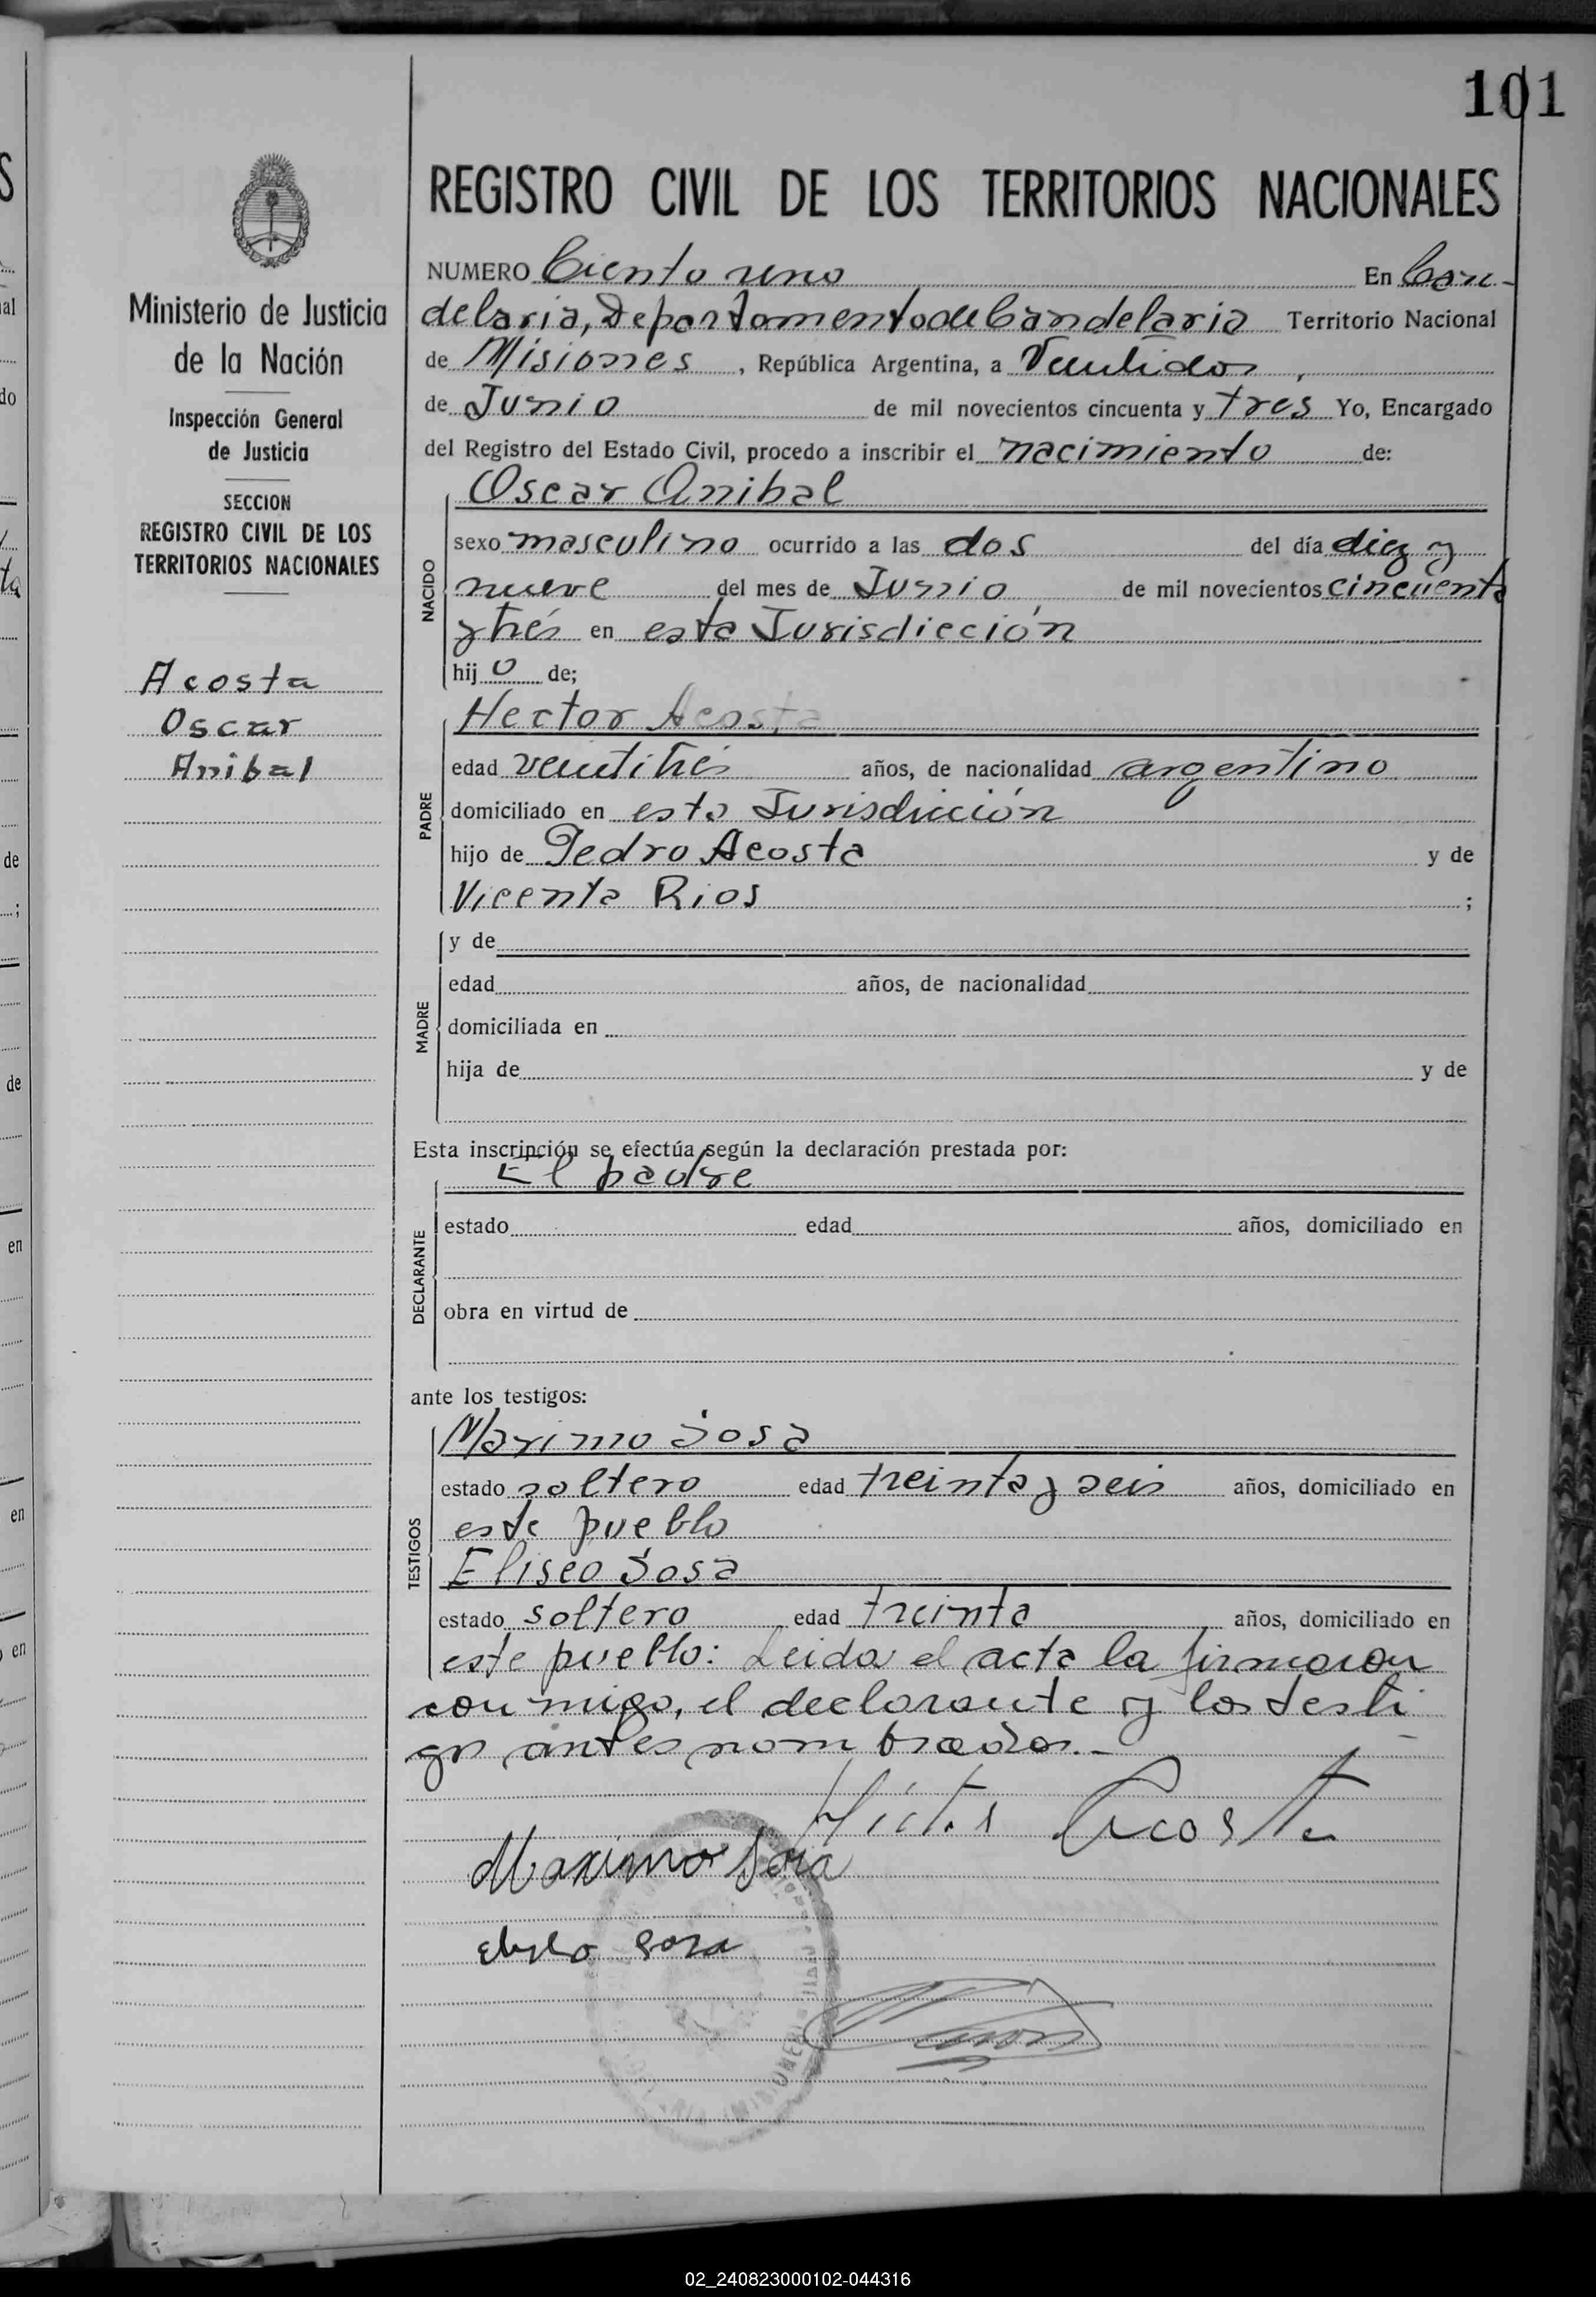 101
REGISTRO CIVIL DE LOS TERRITORIOS NACIONALES
Ministerio de Justicia
de la Nación
Inspección General
de Justicia
SECCION
REGISTRO CIVIL DE LOS
TERRITORIOS NACIONALES
Acosta
Oscar
Anibal
NUMERO Ciento uno En Can-
delaria, Departamento de Candelaria Territorio Nacional
de Misiones, República Argentina, a Veintidos,
de Junio de mil novecientos cincuenta y tres Yo, Encargado
del Registro del Estado Civil, procedo a inscribir el nacimiento de:
NACIDO
Oscar Anibal
sexo masculino ocurrido a las dos del día diez y
nueve del mes de Junio, de mil novecientos cincuenta
y trés en esta Jurisdicción
hijo de;
PADRE
Hector Acosta
edad veintitrés años, de nacionalidad argentino
domiciliado en esta Jurisdicción
hijo de Pedro Acosta y de
Vicenta Rios ;
MADRE
y de
edad años, de nacionalidad
domiciliada en
hija de y de
Esta inscripción se efectúa según la declaración prestada por:
DECLARANTE
El padre
estado edad años, domiciliado en
obra en virtud de
ante los testigos:
TESTIGOS
Maximo Sosa
estado soltero edad treinta y seis años, domiciliado en
este pueblo
Eliseo Sosa
estado soltero edad treinta años, domiciliado en
este pueblo: Leida el acta la firmaron
con migo, el declarante y los testi
gos antes nombrados.-
Héctor Acosta
Maximo Sosa
Eliseo Sosa
02_240823000102-044316